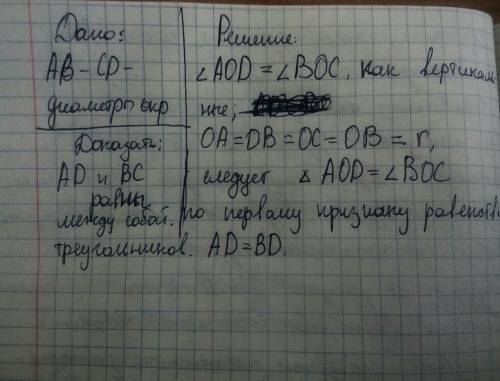 Дано:
АВ - CD -
диаметры окр
Доказать:
AD и BC
равны
между собой.
Решение:
∠AOD = ∠BOC, как вертикаль
ные;
OA = OB = OC = OB = r,
следует ∆ AOD = ∠BOC
по первому признаку равенств.
треугольников. AD = BD.